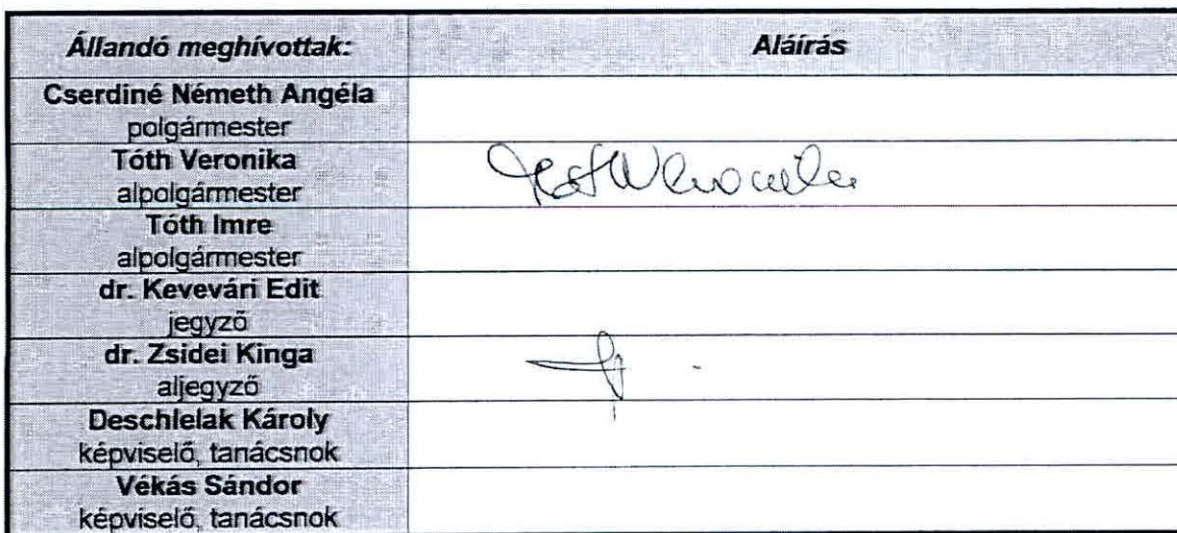 Állandó meghívottak: Aláírás
Cserdiné Németh Angéla
polgármester
Tóth Veronika
alpolgármester
Tóth Imre
alpolgármester
dr. Kevevári Edit
jegyző
dr. Zsidei Kinga
aljegyző
Deschlelak Károly
képviselő, tanácsnok
Vékás Sándor
képviselő, tanácsnok